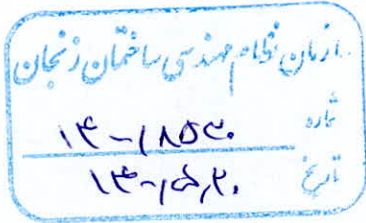 سازمان نظام مهندسی ساختمان زنجان
شماره ۱۴-۱۸۵۳۰
تاریخ